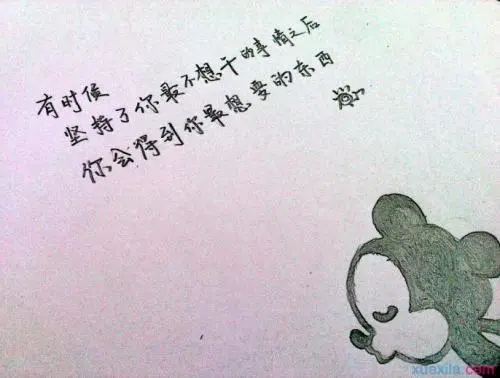 有时候
坚持了你最不想干的事情之后
你会得到你最想要的东西
xuexila.com